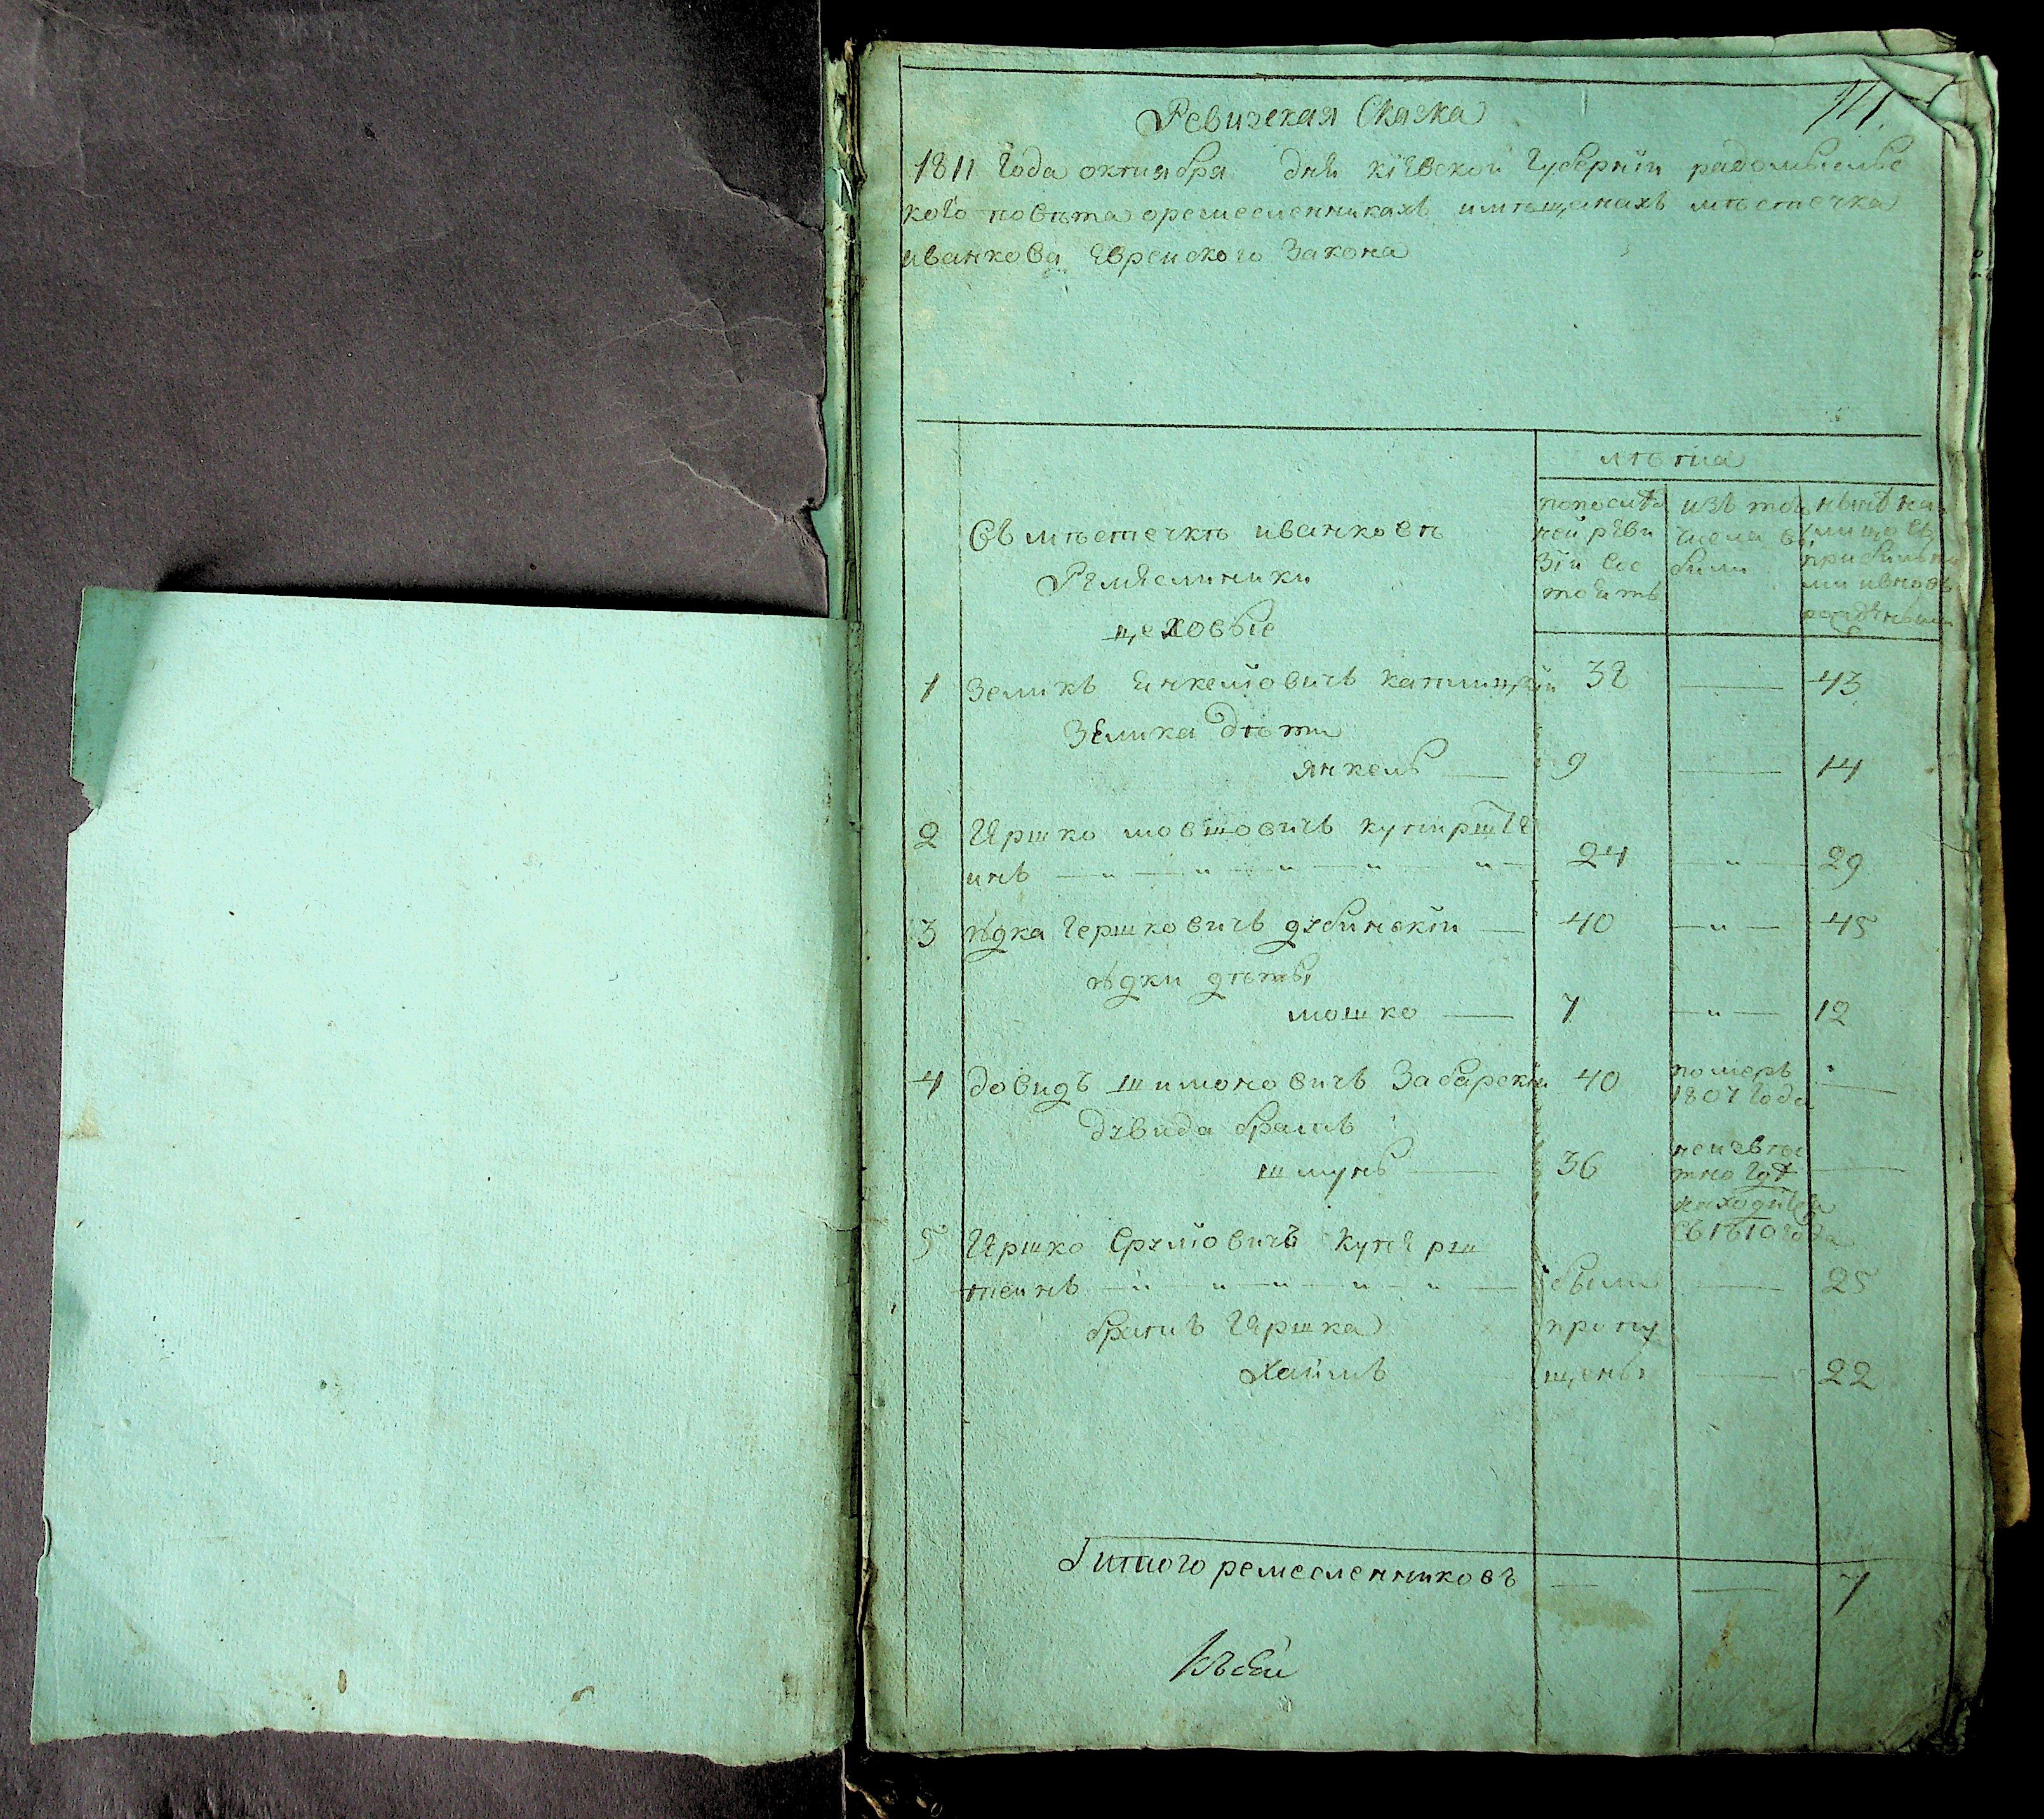 Ревизская Сказка
1811 года октября дня кіевской губерніи радомысльс
кого повѣта оремесленникахъ имѣщанахъ мѣстечка
иванкова Еврейского Закона
лѣта
Въ мѣстечкѣ иванковѣ
Ремѣслиники
цеховые
попослѣд
ней рѣви
зіи сос
тоитъ
изъ того
числа вы
были
нынѣ на
лицо съ
прибылы
ми ивновь
рожденными
1 Зеликъ Янкелiовичъ 38 — 43
Зелика дѣти
янкель — 9 — 14
2 Гершко мовшовичъ купирште
инъ — 24 — 29
3 Гершковичъ дубинскій — 40 — 45
дѣты
мошко — 7 — 12
4 довидъ шимоновичъ Забарскій 40 померъ 1807 года —
давида братъ
шмунь — 36 неизвѣс
тно гдѣ
находится
съ 1810 года
5 Гершко Срулiовичъ куперш
теинъ — были — 25
братъ Гершка пропу
Хаимъ щены — 22
Итого ремесленниковъ — — 7